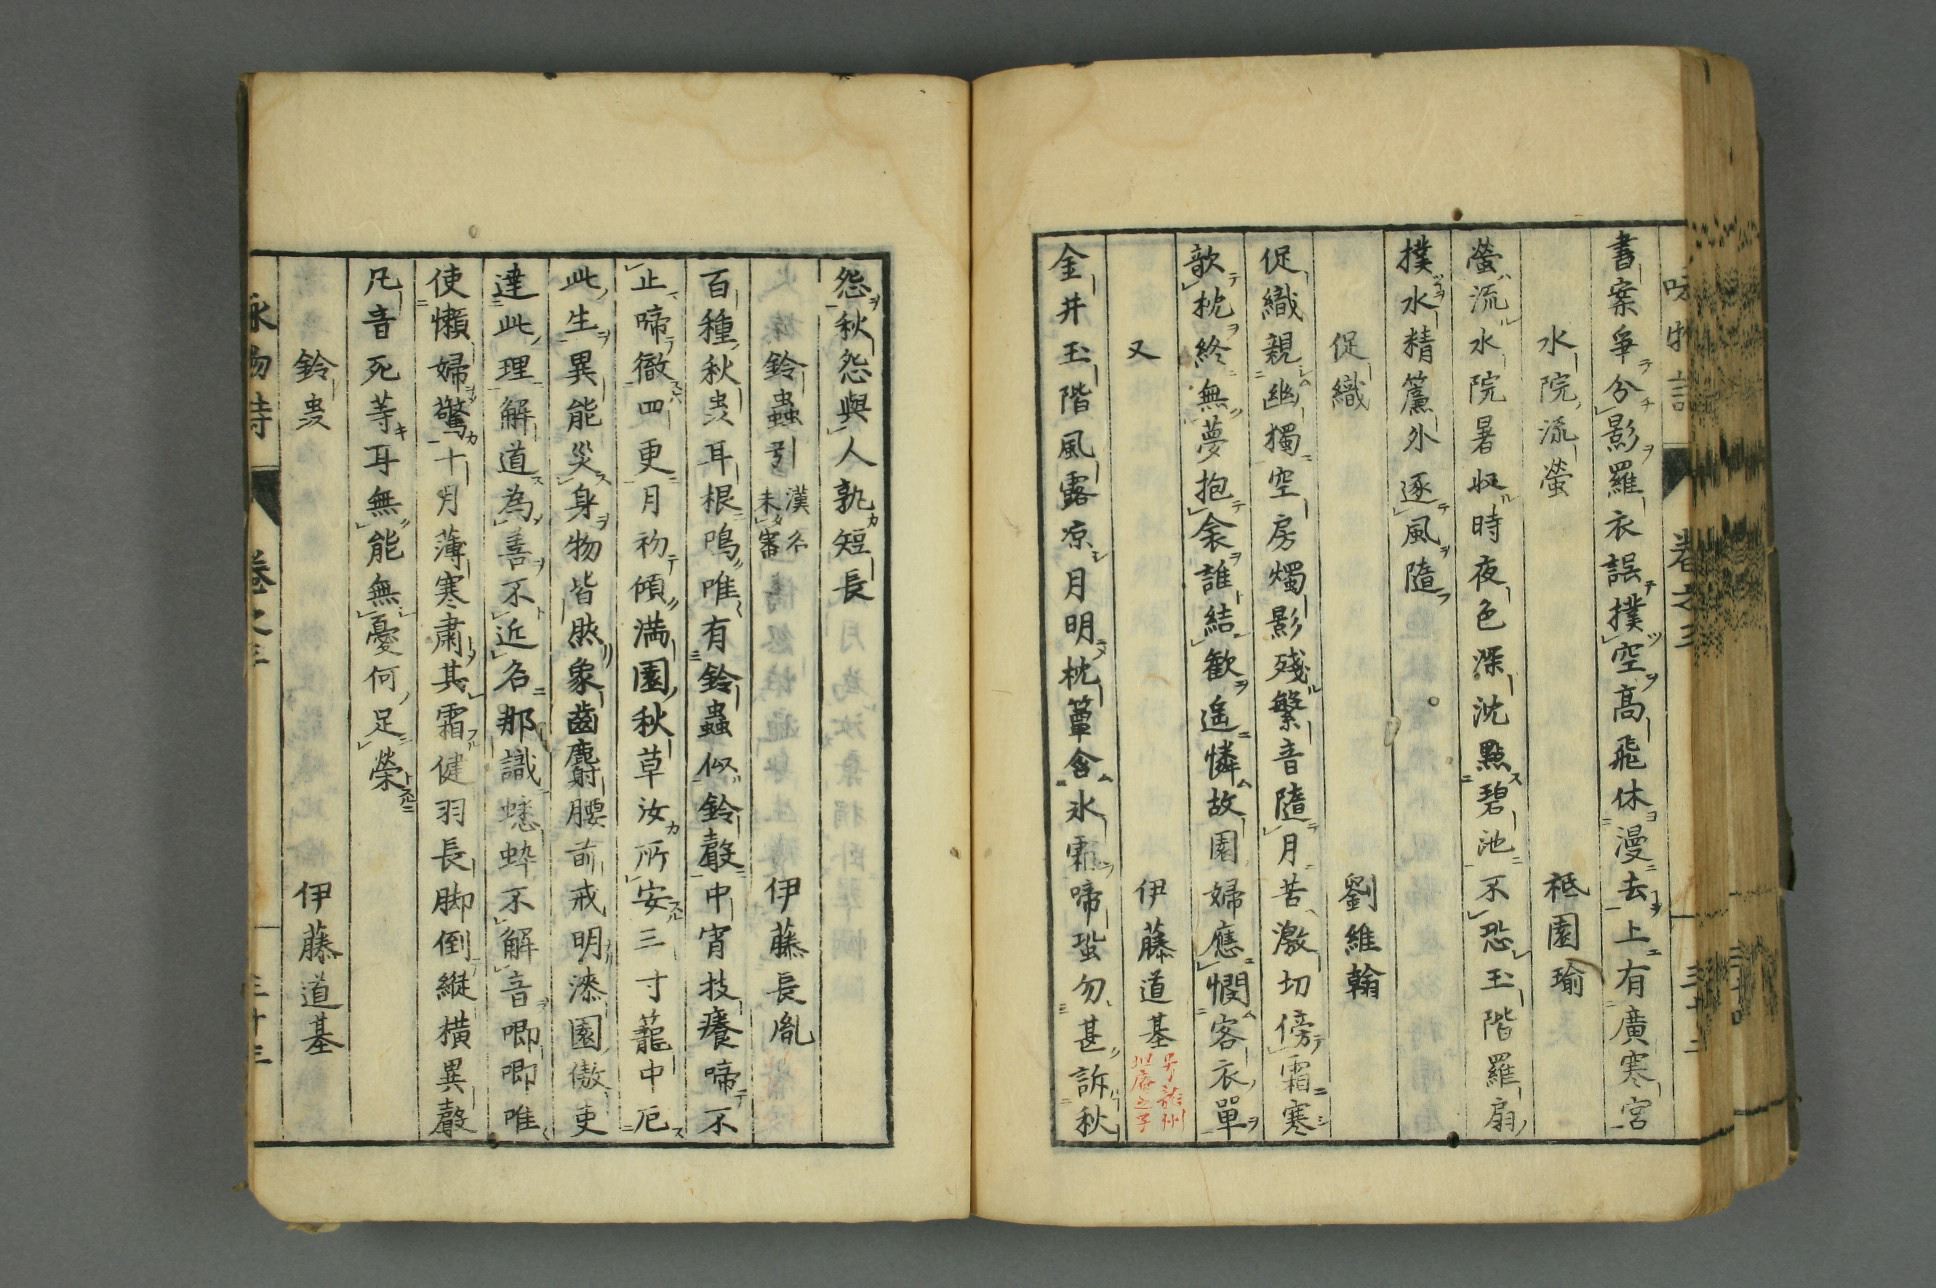 書案爭分影羅衣誤撲空高飛休漫去上有廣寒宮
水院流螢　祗園瑜
螢流水院暑收時夜色深沈點碧池不恐玉階羅扇
撲水精簾外逐風隨
促織　劉維翰
促織親幽獨空房燭影殘繁音隨月苦激切傍霜寒
欹枕終無夢抱衾誰結歡遙憐故園婦應憫客衣單
又　伊藤道基
金井玉階風露凉月明枕簟含氷霜啼蛩勿甚訴秋
怨秋怨與人孰短長
鈴蟲引 漢名未審　伊藤長胤
百種秋虫耳根鳴唯有鈴蟲似鈴聲中宵技癢啼不
止啼徹四更月初傾滿園秋草汝所安三寸蘢中厄
此生異能災身物皆然象齒麝腰前戒明漆園傲吏
達此理解道為善不近名那識蟋蟀不解音喞喞唯
使懶婦驚十月薄寒肅其霜健羽長脚倒縱橫異聲
凡音死等耳無能無憂何足榮
鈴虫　伊藤道基
詠物詩　卷之三　三十三